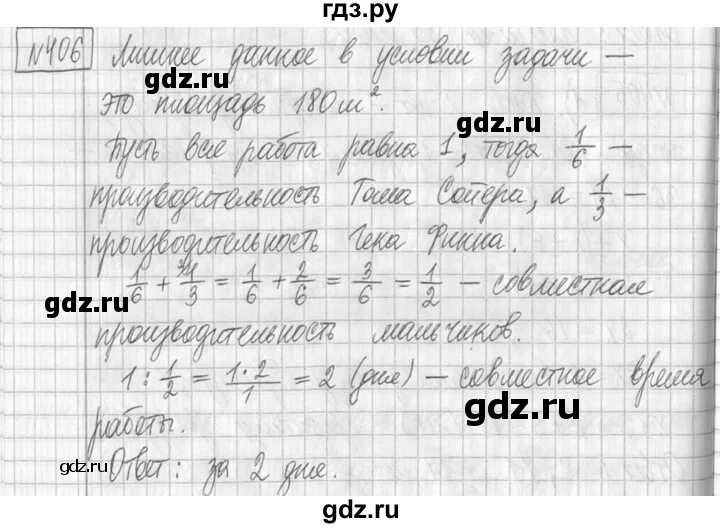 гдз.ру
№406 Лишнее данное в условии задачи —
gdz.ru gdz.ru
это площадь 180 м².
gdz.ru
Пусть вся работа равна 1, тогда 1/6 —
производительность Тома Сойера, а 1/3 —
производительность Гека Финна.
1/6 + ²⁾1/3 = 1/6 + 2/6 = 3/6 = 1/2 — совместная
gdz.ru gdz.ru
производительность мальчиков.
1 : 1/2 = 1·2/1 = 2 (дня) — совместное время
gdz.ru
работы.
gdz.ru
Ответ: за 2 дня.
gdz.ru